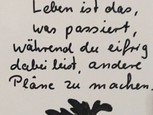 Leben ist das,
was passiert,
während du eifrig
dabei bist, andere
Pläne zu machen.